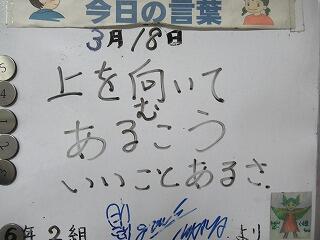 今日の言葉
3月18日
上を向いて
む
あるこう
いいことあるさ
6年2組 より